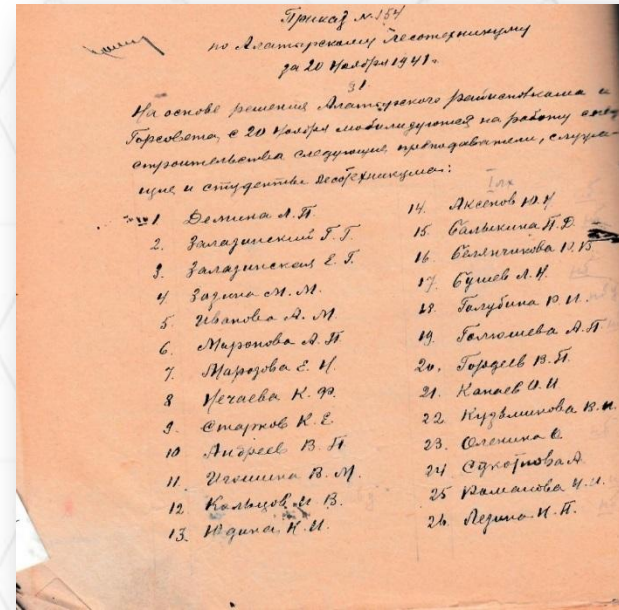 Приказ № 154
по Алатырскому Лесотехникуму
за 20 Ноября 1941 г.
§1.
На основе решения Алатырского райисполкома и
Горсовета, с 20 Ноября мобилизуются на работу
строительства следующие преподаватели, служа-
щие и студенты Лесотехникума:
1 Демина А. П.
2. Залазинский Г. Г.
3. Залазинская Е. Г.
4 Зорина М. М.
5. Иванова А. М.
6. Миронова А. П.
7. Марозова Е. И.
8 Нечаева К. Ф.
9. Старков К. Е
10 Андреев В. П
11. Игошина В. М.
12 Кольцов М В.
13. Юдина К. И.
14. Аксенов Ю. И
15 Балыкина П. Д
16 В.
17. Бушев Л. И
18. Голубина Р И.
19. А. П
20. Гордеев В. П.
21. Канаев И. И
22 Кузьминова В. И.
23. Оленина О
24 А
25 Романова И. И.
26. Ледина. И. П.